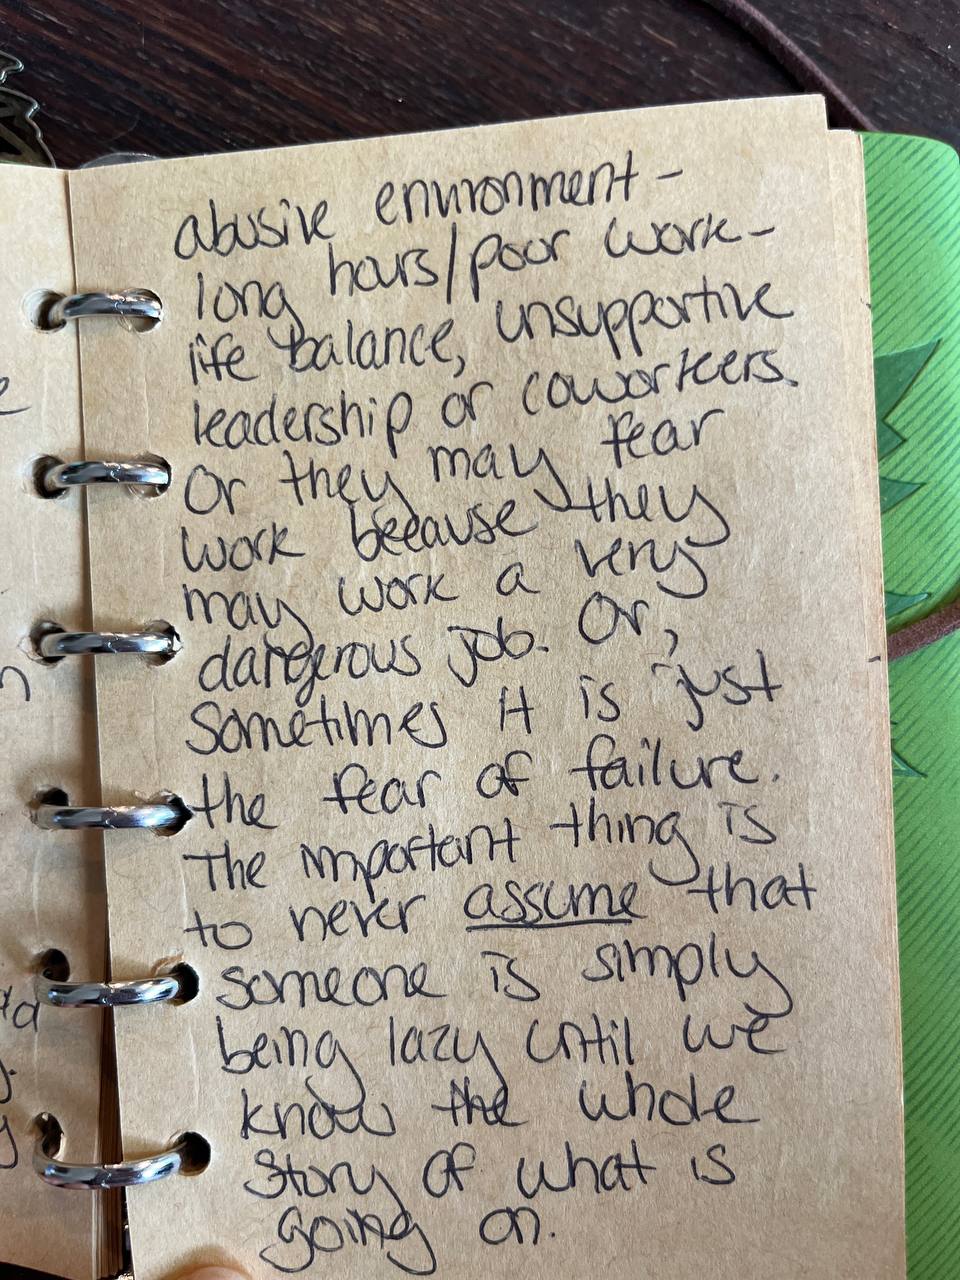 abusive environment -
long hours/poor work-
life balance, unsupportive
leadership or coworkers.
Or they may fear
work because they
may work a very
dangerous job. Or,
sometimes it is just
the fear of failure.
The important thing is
to never assume that
someone is simply
being lazy until we
know the whole
story of what is
going on.